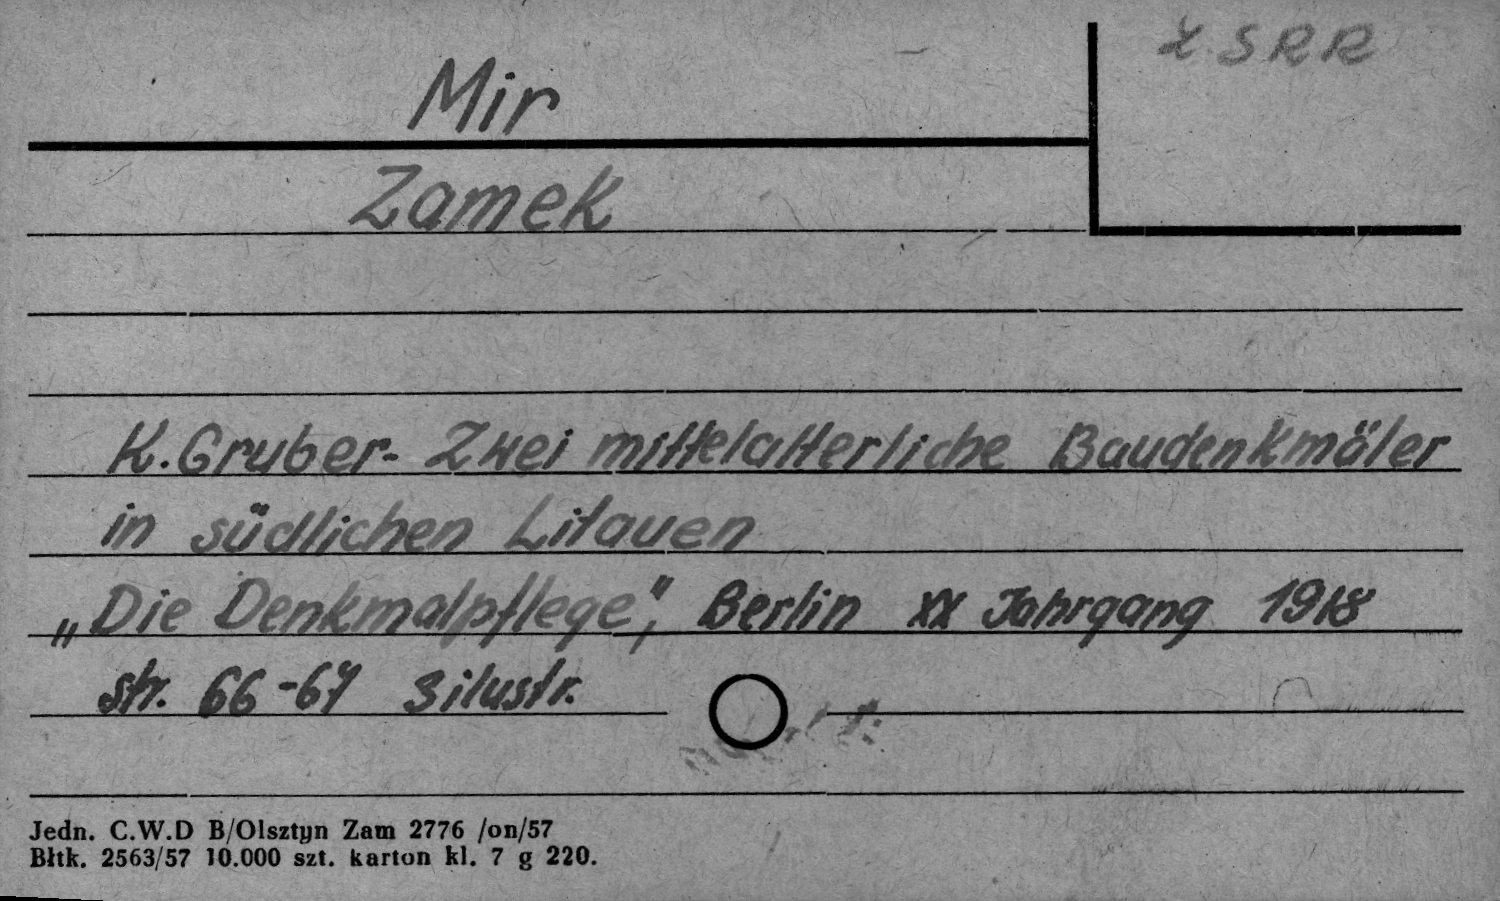 Z.SRR
Mir
Zamek
K.Gruber- Zwei mittelalterliche Baudenkmäler
in südlichen Litauen
„Die Denkmalpflege", Berlin XX Jahrgang 1918
str. 66-67 3 ilustr.
Jedn. C.W.D B/Olsztyn Zam 2776 /on/57
Błtk. 2563/57 10.000 szt. karton kl. 7 g 220.